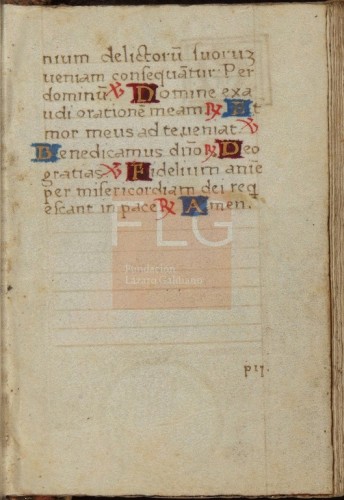 nium delictorū suoruʒ
veniam consequātur. Per
dominū. ℣ Domine exa
udi orationē meam ℟ Et
mor meus ad te veniat. ℣
Benedicamus dn̄o ℟ Deo
gratias ℣ Fidelium anīe
per misericordiam dei req
escant in pace ℟ Amen.
FLG
Fundación
Lázaro Galdiano